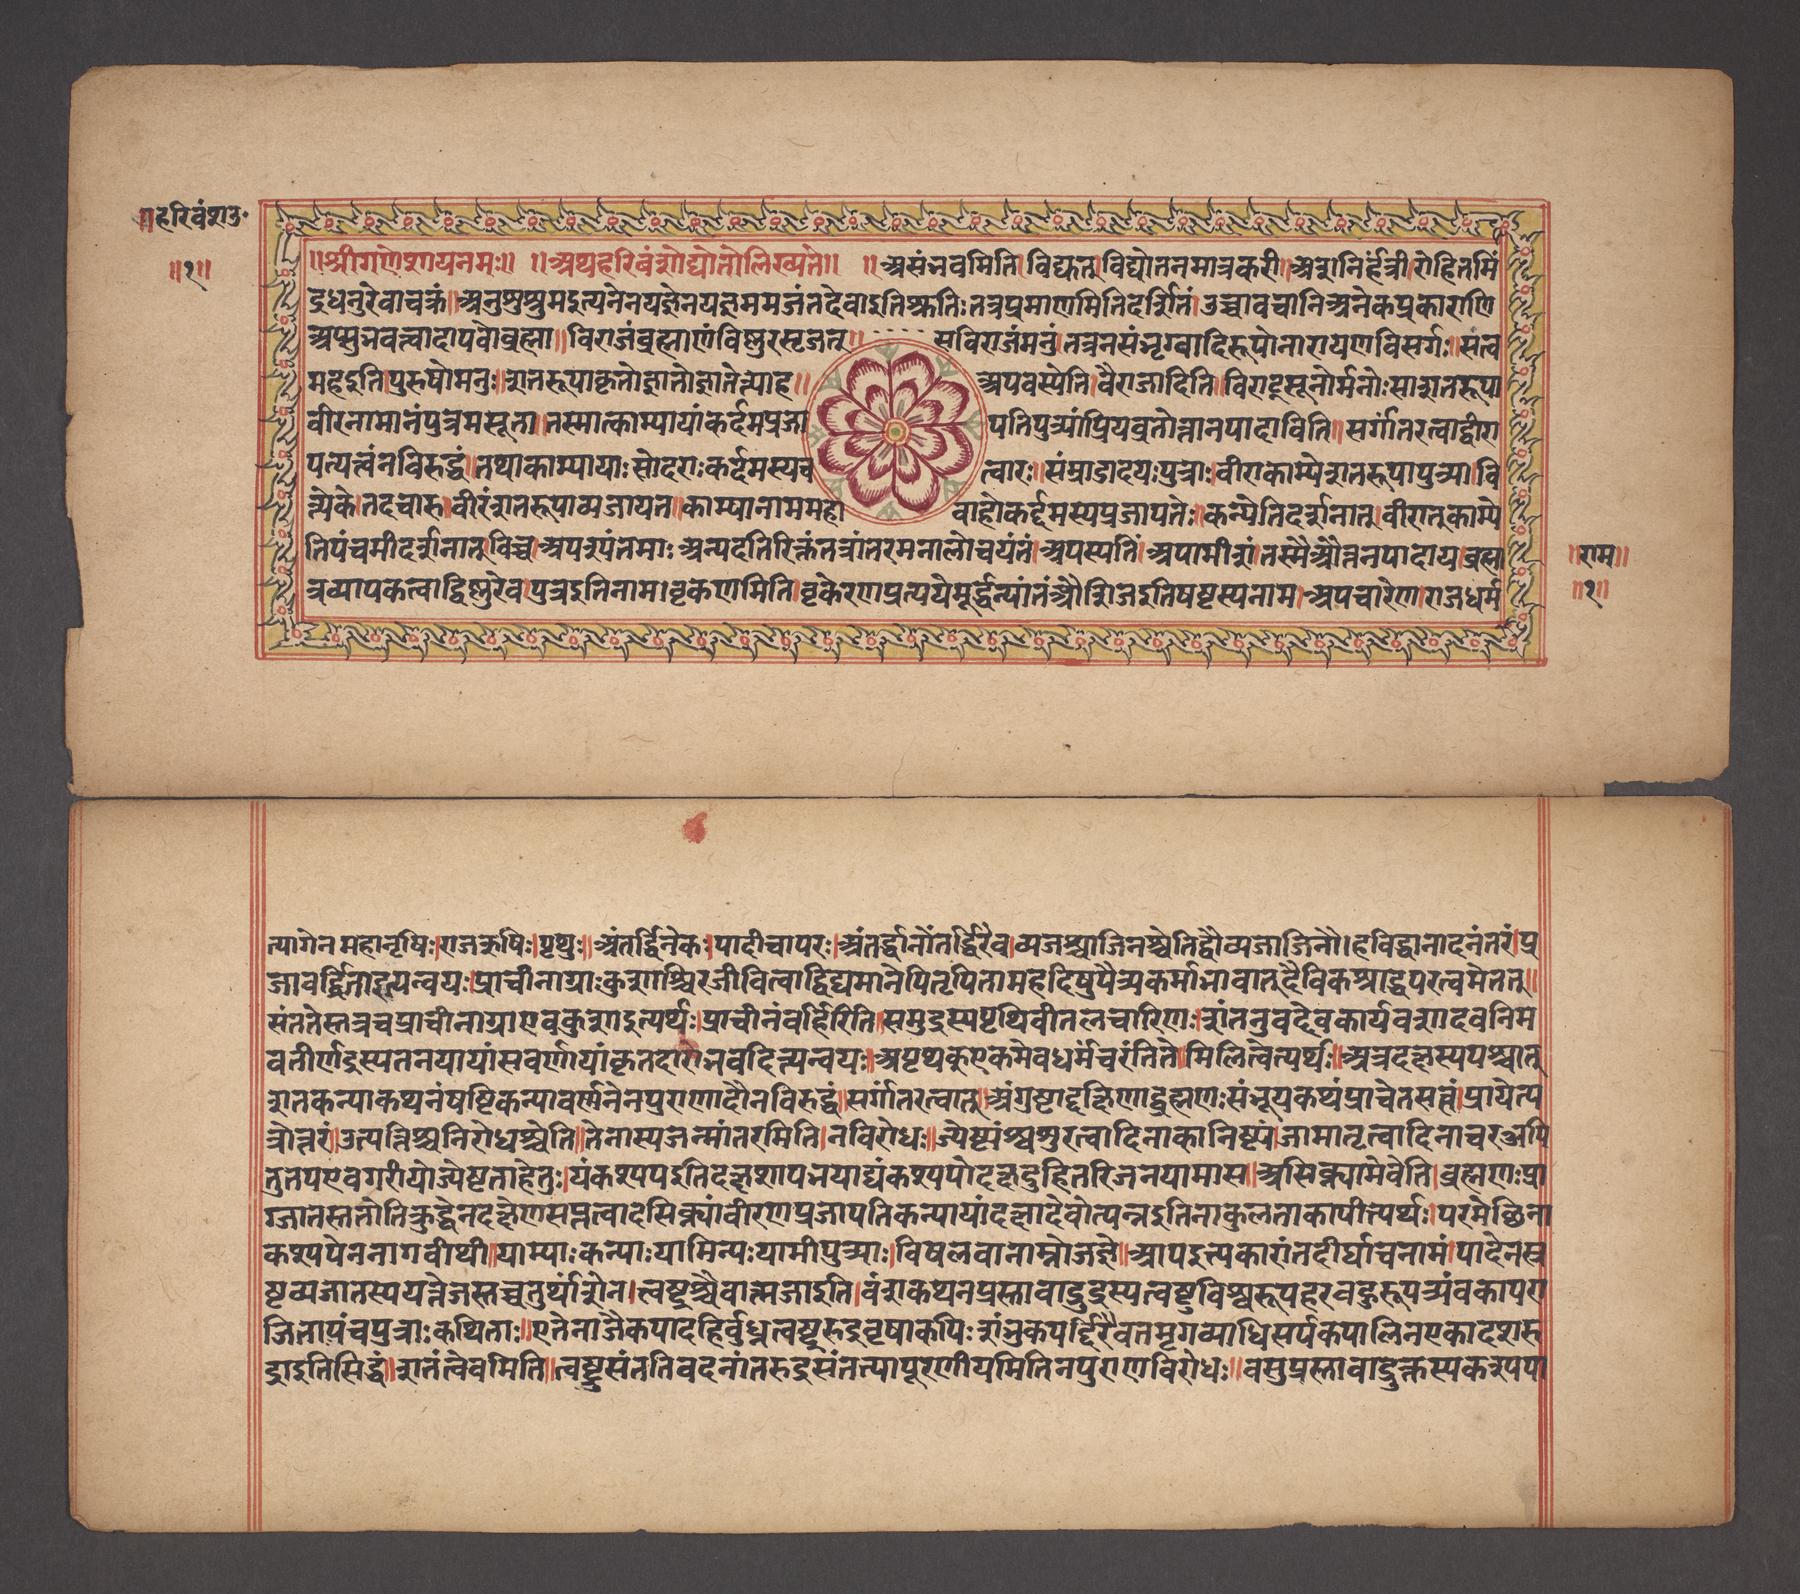 ॥हरिवंशउ॰
॥१॥
॥श्रीगणेशायनमः॥ ॥अथहरिवंशोद्योतोलिख्यते॥ ॥असंभवमिति।विद्युत्।विद्योतनमात्रकरी।अशनिर्हंत्री।रोहितमिं
द्रधनुरेवाचक्रं।अनुशुश्रुमइत्यनेनयज्ञेनयज्ञममजंतदेवाइतिश्रुतिःतत्रप्रमाणमितिदर्शितं।उच्चावचानिअनेकप्रकाराणि
अप्सुभवत्वादापवोब्रह्मा॥विराजंब्रह्माणंविष्णुरसृजत्॥ सविराजंमनुं।तत्रनसंभृग्वादिरूपोनारायणविसर्गः॥संत्व
महइति।पुरुषोमनुः॥शतरूपाकृतोज्ञातोज्ञातेत्याह॥ अपवस्येति।वैराजादिति।विराट्सूनोर्मनोःसाशतरूपा
वीरनामानंपुत्रमसूता।तस्मात्काम्पायांकर्दमप्रजा पतिपुत्र्यांप्रियव्रतोत्तानपादाविति॥सर्गांतरत्वाद्वीरा
पत्यत्वंनविरुद्धं।तथाकाम्यायाःसोदराःकर्दमस्यच त्वारः॥संम्राडादयःपुत्राः।वीराकाम्येशतरूपापुत्र्या।वि
त्र्येके।तदचारु।वीरंशतरूपाव्यजायत।काम्यानाममहा वाहोकर्द्दमस्यप्रजापतेः॥कन्येतिदर्शनात्।वीरातुकाम्पे
तिपंचमीदर्शनात्तुविच्च।अपरुपंतमाःअन्यदतिरिक्तंतत्रांतरमनालोचयंतं।अपस्पतिं।अपामीशं।तस्मैऔत्तनपादाय।ब्रह्म
त्रव्यापकत्वाद्विष्णुरेव।पुत्रइतिनाम।वृकणमिति।वृकेरणप्रत्ययेमूर्द्धन्यांतंऔशिजइतिषष्टस्यनाम।अपचारेण।राजधर्म
॥राम॥
॥१॥
त्यागेनमहानृषिः।राजऋषिः।पृथुः॥अंतर्द्धिनेकः।पादीचापरः।अंतर्द्धानोंतर्द्धिरेव।व्यजश्चाजिनश्चेतिद्वौव्यजाजिनौ।हविर्द्धानादनंतरं।प्र
जावर्द्धिताइत्यन्वयः।प्राचीनाग्राःकुशाश्चिरजीवित्वाद्विद्यमानेपितृपितामहदिषुपैत्र्यकर्माभावात्दैविकश्राद्धपरत्वमेतत्॥
संततेस्तत्रचप्राचीनाग्राएवकुशाइत्यर्थः।प्राचीनंवर्हिरिति॥समुद्रस्यपृथिवीतलचारिणः।शंतनुवदेवकार्यवशादवनिम
वतीर्णइस्यतनयायांसवर्णायांकृतदारोभवदित्यन्वयः॥अपृथक्एकमेवधर्मंचरंतिते।मिलित्वेत्यर्थः॥अत्रदक्षस्यपश्चात्
शतकन्याकथनंषष्टिकन्यावर्णनेनपुराणादौनविरुद्धं॥सर्गांतरत्वात्।अंगुष्टाद्दक्षिणाद्ब्रह्मणःसंभूयकथंप्राचेतसत्वं।प्रायेत्प
त्रोत्तरं।उत्पत्तिश्चनिरोधश्चेति॥तेनास्यजन्मांतरमिति।नविरोधः॥ज्येष्ठ्यंश्वशुरत्वादिनाकानिष्ठ्यं।जामातृत्वादिनाचरअपि
तुतपएवगरीयोज्येष्टताहेतुः।यंकश्यपइतिदक्षशापभयाद्यंकश्यपोदक्षदुहितरिजनयामास॥असिक्न्यामेवेति।ब्रह्मणःप्रा
ग्जातस्ततोतिक्रुद्धेनदक्षेणसप्नत्वादसिक्न्यांवीरणप्रजापतिकन्यायांदक्षादेवोत्पन्नइतिनाकुलताकापीत्यर्थः।परमेष्ठिना
कश्यपेननागवीथी॥याम्याःकन्याःयामिन्यःयामीपुत्र्याः।विषलवानाम्नोजज्ञे॥आपइत्यकारांतदीर्घाचनामं।पादेनस्व
ष्टव्यजातस्ययत्तेजस्तच्चतुर्थांशेन।त्वष्टुश्चैवात्मजाइति।वंशकथनप्रस्तावाद्रुद्रस्यत्वष्टुविश्वरूपहरवहुरूपत्र्यंवकापरा
जितापंचपुत्राःकथिताः॥एतेनाजैकपादहिर्वुध्नत्वष्टुरुद्रवृषाकपिःशंभुकपर्द्दिरैवतमृगव्याधिसर्पकपालिनएकादशरु
द्राइतिसिद्धं॥शतंत्वेवमिति॥त्वष्ट्रसंततिवदनांतरुद्रसंतत्यापूरणीयमितिनपुराणविरोधः॥वसुप्रस्तावाद्दुक्तस्पकश्यपपा